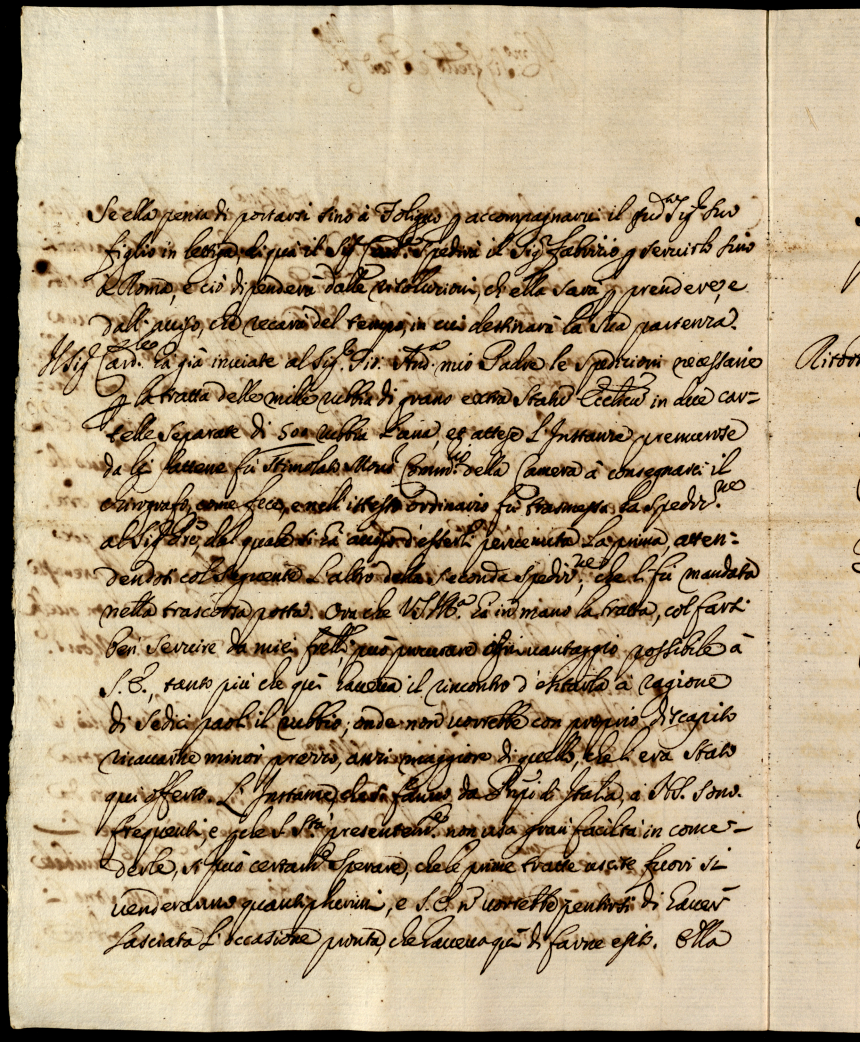 Se ella pensa di portarsi sino à Foligno p accompagnarvi il sud.º Sig.r Suo
figlio in lettiga, di quà il Sig.r Card.l Spedirà il Sig.r Fabritio p servirlo sino
à Roma, e ciò dipenderà dalle risolutioni, ch'ella sarà p prendere, e
dall'auiso, che recarà del tempo, in cui destinarà la sua partenza.
Il Sig.r Card.le hà già inuiate al Sig.r Gio. And.a mio Padre le Spedizioni necessarie
p la tratta delle mille rubbia di grano extra Statũ Eccl.cũ in due car=
telle separate di 500 rubbia l'una, et attese l'Instanze premurose
da lì fattene fù stimolato Mons.r Comm.rio della Camera à consegnarci il
chirografo, come fece, e nell'istesso ordinario fù trasmessa la Spediz.ne
al Sig.r Pre, dal quale si hà auiso d'esserli peruenuta la prima, atten=
dendosi col seguente l'altro della seconda Spediz.ne, che li fù mandata
nella trascorsa posta. Ora che V.S. Ill.ma hà in mano la tratta, col farsi
ben servire da miei frelli può procurare ogni uantaggio possibile à
S.E., tanto più che quì haueua il rincontro d'esitarla à ragione
di sedici paoli il rubbio; onde non uorrebbe con proprio discapito
ricauarne minor prezzo, anzi maggiore di quello, che li era stato
qui offerto. L'Instanze, che si fanno da Pñpi di Italia, à N.S. sono
frequenti, e p che S. S.tà presentem.te non usa gran facilità in conce=
derle, si può certam.te sperare, che le prime tratte uscite fuori si
uenderanno quanti plurimi, e S.E. ñ uorrebbe pentirsi di hauer
lasciata l'occasione pronta, che haueua quì di farne esito. Ella
Ritor